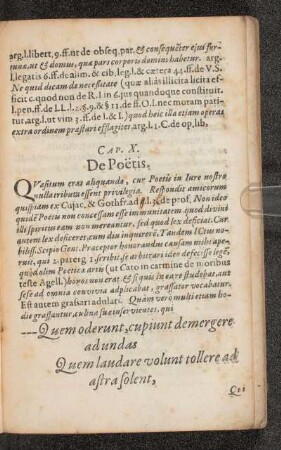 arg.l.libert. 9. ff. ut de obseq. par. & consequẽter ejus fortunæ, ut & domus, quæ pars corporis domini habetur. arg.
l. legatis 6. ff. de alim. & cib. leg. l. & cætera 44. ff. de V.S.
Ne quid dicam de necessitate (quæ aliàs illicita licita efficit c. quod non de R.I. in 6. jus quandoque constituit.
l. pen. ff. de LL. l. 2. §. 9. & § 11. de ff. O.I. nec moram patitur, arg. l. ut vim 3. ff. de I. & I.) quod heic illa etiam operas
extra ordinem præstari efflagitet. arg. l. 1. C. de op. lib.
CAP. X.
De Poëtis.
QUæsitum eras aliquando, cur Poetis in Iure nostro
nulla tributa essent privilegia. Respondit amicorum
quispiam ex Cujac. & Gothfr. ad l. 3. de prof. Non ideo
quidẽ Poëtis non concessam esse immunitatem quod divini
illi spiritus eam non mereantur, sed quod lex deficiat. Cur
autem lex deficeret, cum diu inquireret. Tandem ICtus nobiliss. Scipio Gent. Præceptor honorandus causam mihi aperuit, qui 2. parerg. 1. scribit, se arbitrari ideo defecisse legẽ,
quòd olim Poeticæ artis (ut Cato in carmine de moribus
teste Agell.) honos non erat, & si quis in ea re studebat, aut
sese ad omnia convivia adplicabat, grassator vocabatur.
Est autem grassari adulari. Quàm verò multi etiam hodie grassantur, culinæ suæ inservientes, qui
---Quem oderunt, cupiunt demergere
ad undas
Quem laudare volunt tollere ad
astra solent,
Qui